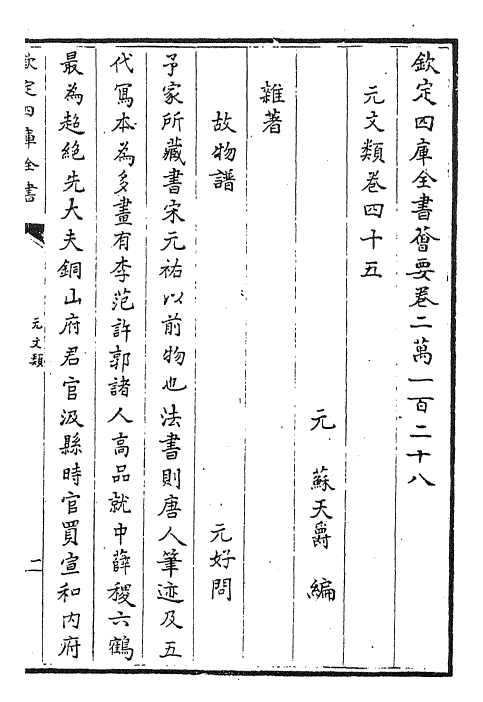 欽定四庫全書薈要卷二萬一百二十八
元文類卷四十五
元　蘇天爵　編
雜著
故物譜　元好問
予家所藏書宋元祐以前物也法書則唐人筆迹及五
代寫本為多畫有李范許郭諸人高品就中薛稷六鶴
最為超絶先大夫銅山府君官汲縣時官買宣和内府
欽定四庫全書
元文類